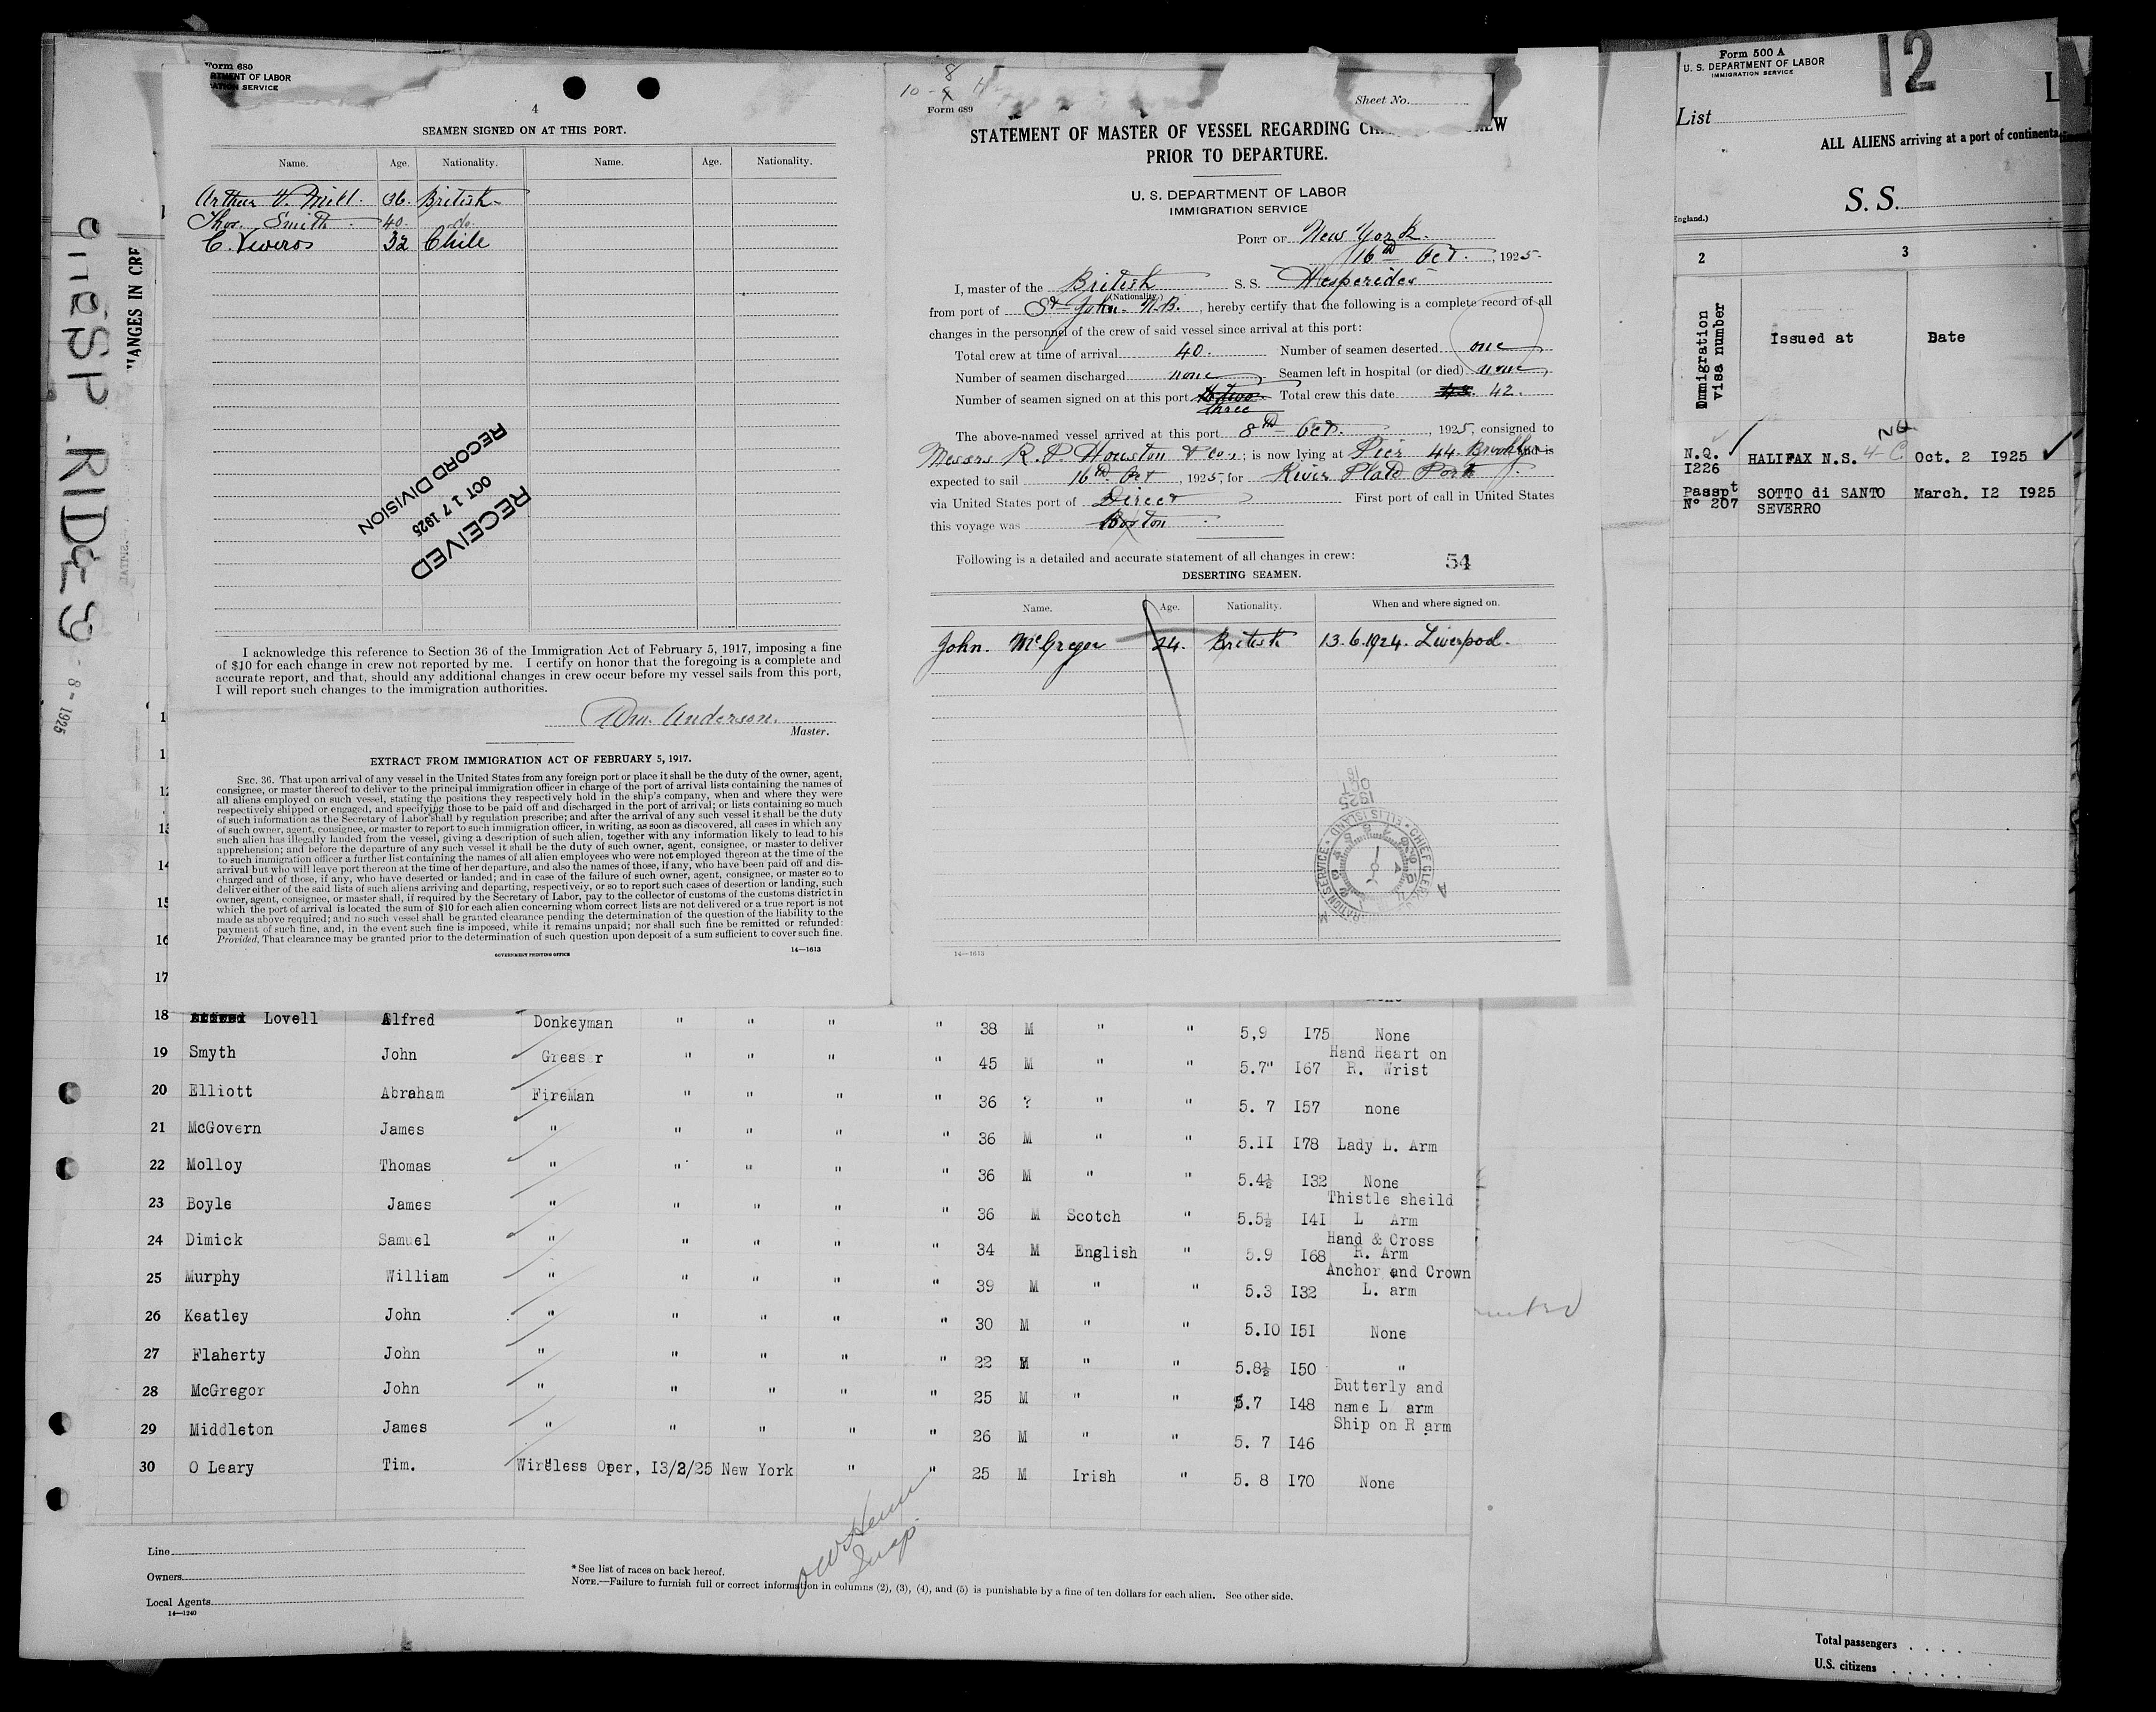 Form 680
RTMENT OF LABOR
ATION SERVICE
4
SEAMEN SIGNED ON AT THIS PORT.
Name. Age. Nationality. Name. Age. Nationality.
Arthur V. Mill. 36. British
Thos. Smith 40. do.
C. Viveros 32 Chile
RECEIVED
OCT 17 1925
RECORD DIVISION
I acknowledge this reference to Section 36 of the Immigration Act of February 5, 1917, imposing a fine
of $10 for each change in crew not reported by me. I certify on honor that the foregoing is a complete and
accurate report, and that, should any additional changes in crew occur before my vessel sails from this port,
I will report such changes to the immigration authorities.
Wm. Anderson.
Master.
EXTRACT FROM IMMIGRATION ACT OF FEBRUARY 5, 1917.
SEC. 36. That upon arrival of any vessel in the United States from any foreign port or place it shall be the duty of the owner, agent,
consignee, or master thereof to deliver to the principal immigration officer in charge of the port of arrival lists containing the names of
all aliens employed on such vessel, stating the positions they respectively hold in the ship's company, when and where they were
respectively shipped or engaged, and specifying those to be paid off and discharged in the port of arrival; or lists containing so much
of such information as the Secretary of Labor shall by regulation prescribe; and after the arrival of any such vessel it shall be the duty
of such owner, agent, consignee, or master to report to such immigration officer, in writing, as soon as discovered, all cases in which any
such alien has illegally landed from the vessel, giving a description of such alien, together with any information likely to lead to his
apprehension; and before the departure of any such vessel it shall be the duty of such owner, agent, consignee, or master to deliver
to such immigration officer a further list containing the names of all alien employees who were not employed thereon at the time of the
arrival but who will leave port thereon at the time of her departure, and also the names of those, if any, who have been paid off and dis-
charged and of those, if any, who have deserted or landed; and in case of the failure of such owner, agent, consignee, or master so to
deliver either of the said lists of such aliens arriving and departing, respectively, or so to report such cases of desertion or landing, such
owner, agent, consignee, or master shall, if required by the Secretary of Labor, pay to the collector of customs of the customs district in
which the port of arrival is located the sum of $10 for each alien concerning whom correct lists are not delivered or a true report is not
made as above required; and no such vessel shall be granted clearance pending the determination of the question of the liability to the
payment of such fine, and, in the event such fine is imposed, while it remains unpaid; nor shall such fine be remitted or refunded:
Provided, That clearance may be granted prior to the determination of such question upon deposit of a sum sufficient to cover such fine.
GOVERNMENT PRINTING OFFICE 14—1613
10 - 8
Form 689
Sheet No.
STATEMENT OF MASTER OF VESSEL REGARDING CH EW
PRIOR TO DEPARTURE.
U. S. DEPARTMENT OF LABOR
IMMIGRATION SERVICE
PORT OF New York.
16th Oct. , 1925.
I, master of the British S. S. Hesperides
(Nationality.)
from port of St John. N.B. , hereby certify that the following is a complete record of all
changes in the personnel of the crew of said vessel since arrival at this port:
Total crew at time of arrival 40. Number of seamen deserted one
Number of seamen discharged none Seamen left in hospital (or died) none,
Number of seamen signed on at this port two Total crew this date 42.
three
The above-named vessel arrived at this port 8th Oct. , 1925, consigned to
Messrs R. P. Houston & Co.; is now lying at Pier 44. Brooklyn and is
expected to sail 16th Oct , 1925, for River Plate Ports
via United States port of Direct First port of call in United States
this voyage was Boston
Following is a detailed and accurate statement of all changes in crew:
54
DESERTING SEAMEN.
Name. Age. Nationality. When and where signed on.
John. McGregor 24. British 13.6.1924. Liverpool.
1925
OCT
16
CHIEF CLERK
ELLIS ISLAND
14—1613
HANGES IN CRE
HESPERIDES
8 - 1925
1
1
12
13
14
15
16
17
18 Lovell Alfred Donkeyman " " " " 38 M " " 5,9 I75 None
19 Smyth John Greaser " " " " 45 M " " 5.7" I67 Hand Heart on
R. Wrist
20 Elliott Abraham FireMan " " " " 36 ? " " 5. 7 I57 none
21 McGovern James " " " " " 36 M " " 5.II I78 Lady L. Arm
22 Molloy Thomas " " " " " 36 M " " 5.4½ I32 None
23 Boyle James " " " " " 36 M Scotch " 5.5½ I4I Thistle sheild
L Arm
24 Dimick Samuel " " " " " 34 M English " 5.9 I68 Hand & Cross
R. Arm
25 Murphy William " " " " " 39 M " " 5.3 I32 Anchor and Crown
L. arm
26 Keatley John " " " " " 30 M " " 5.IO I5I None
27 Flaherty John " " " " " 22 M " " 5.8½ I50 "
28 McGregor John " " " " " 25 M " " 5.7 I48 Butterly and
name L arm
29 Middleton James " " " " " 26 M " " 5. 7 I46 Ship on R arm
30 O Leary Tim. Wireless Oper, I3/2/25 New York " " 25 M Irish " 5. 8 I70 None
Line
Owners
Local Agents
14—1240
Insp.
* See list of races on back hereof.
NOTE.—Failure to furnish full or correct information in columns (2), (3), (4), and (5) is punishable by a fine of ten dollars for each alien. See other side.
Form 500 A
U. S. DEPARTMENT OF LABOR
IMMIGRATION SERVICE
12
L
List
ALL ALIENS arriving at a port of continenta
S. S.
England.)
2 3
Immigration
visa number
Issued at Date
N.Q.
I226 HALIFAX N.S. Oct. 2 I925
Passpt
Nº 207 SOTTO di SANTO March. I2 I925
SEVERRO
Total passengers
U.S. citizens